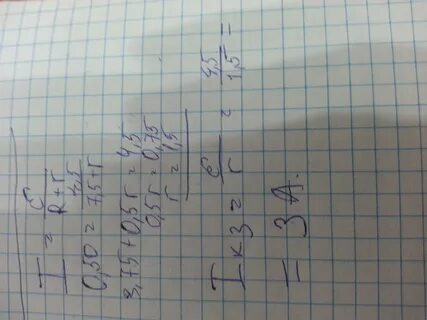 I = ε/(R+r)
0,50 = 4,5/(7,5+r)
3,75+0,5r = 4,5
0,5r = 0,75
r = 1,5
Iкз = ε/r = 4,5/1,5 =
= 3 А.